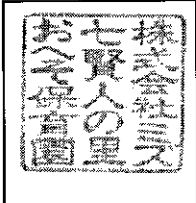 株式会社ミス
七賢人の里
おへそ保育園